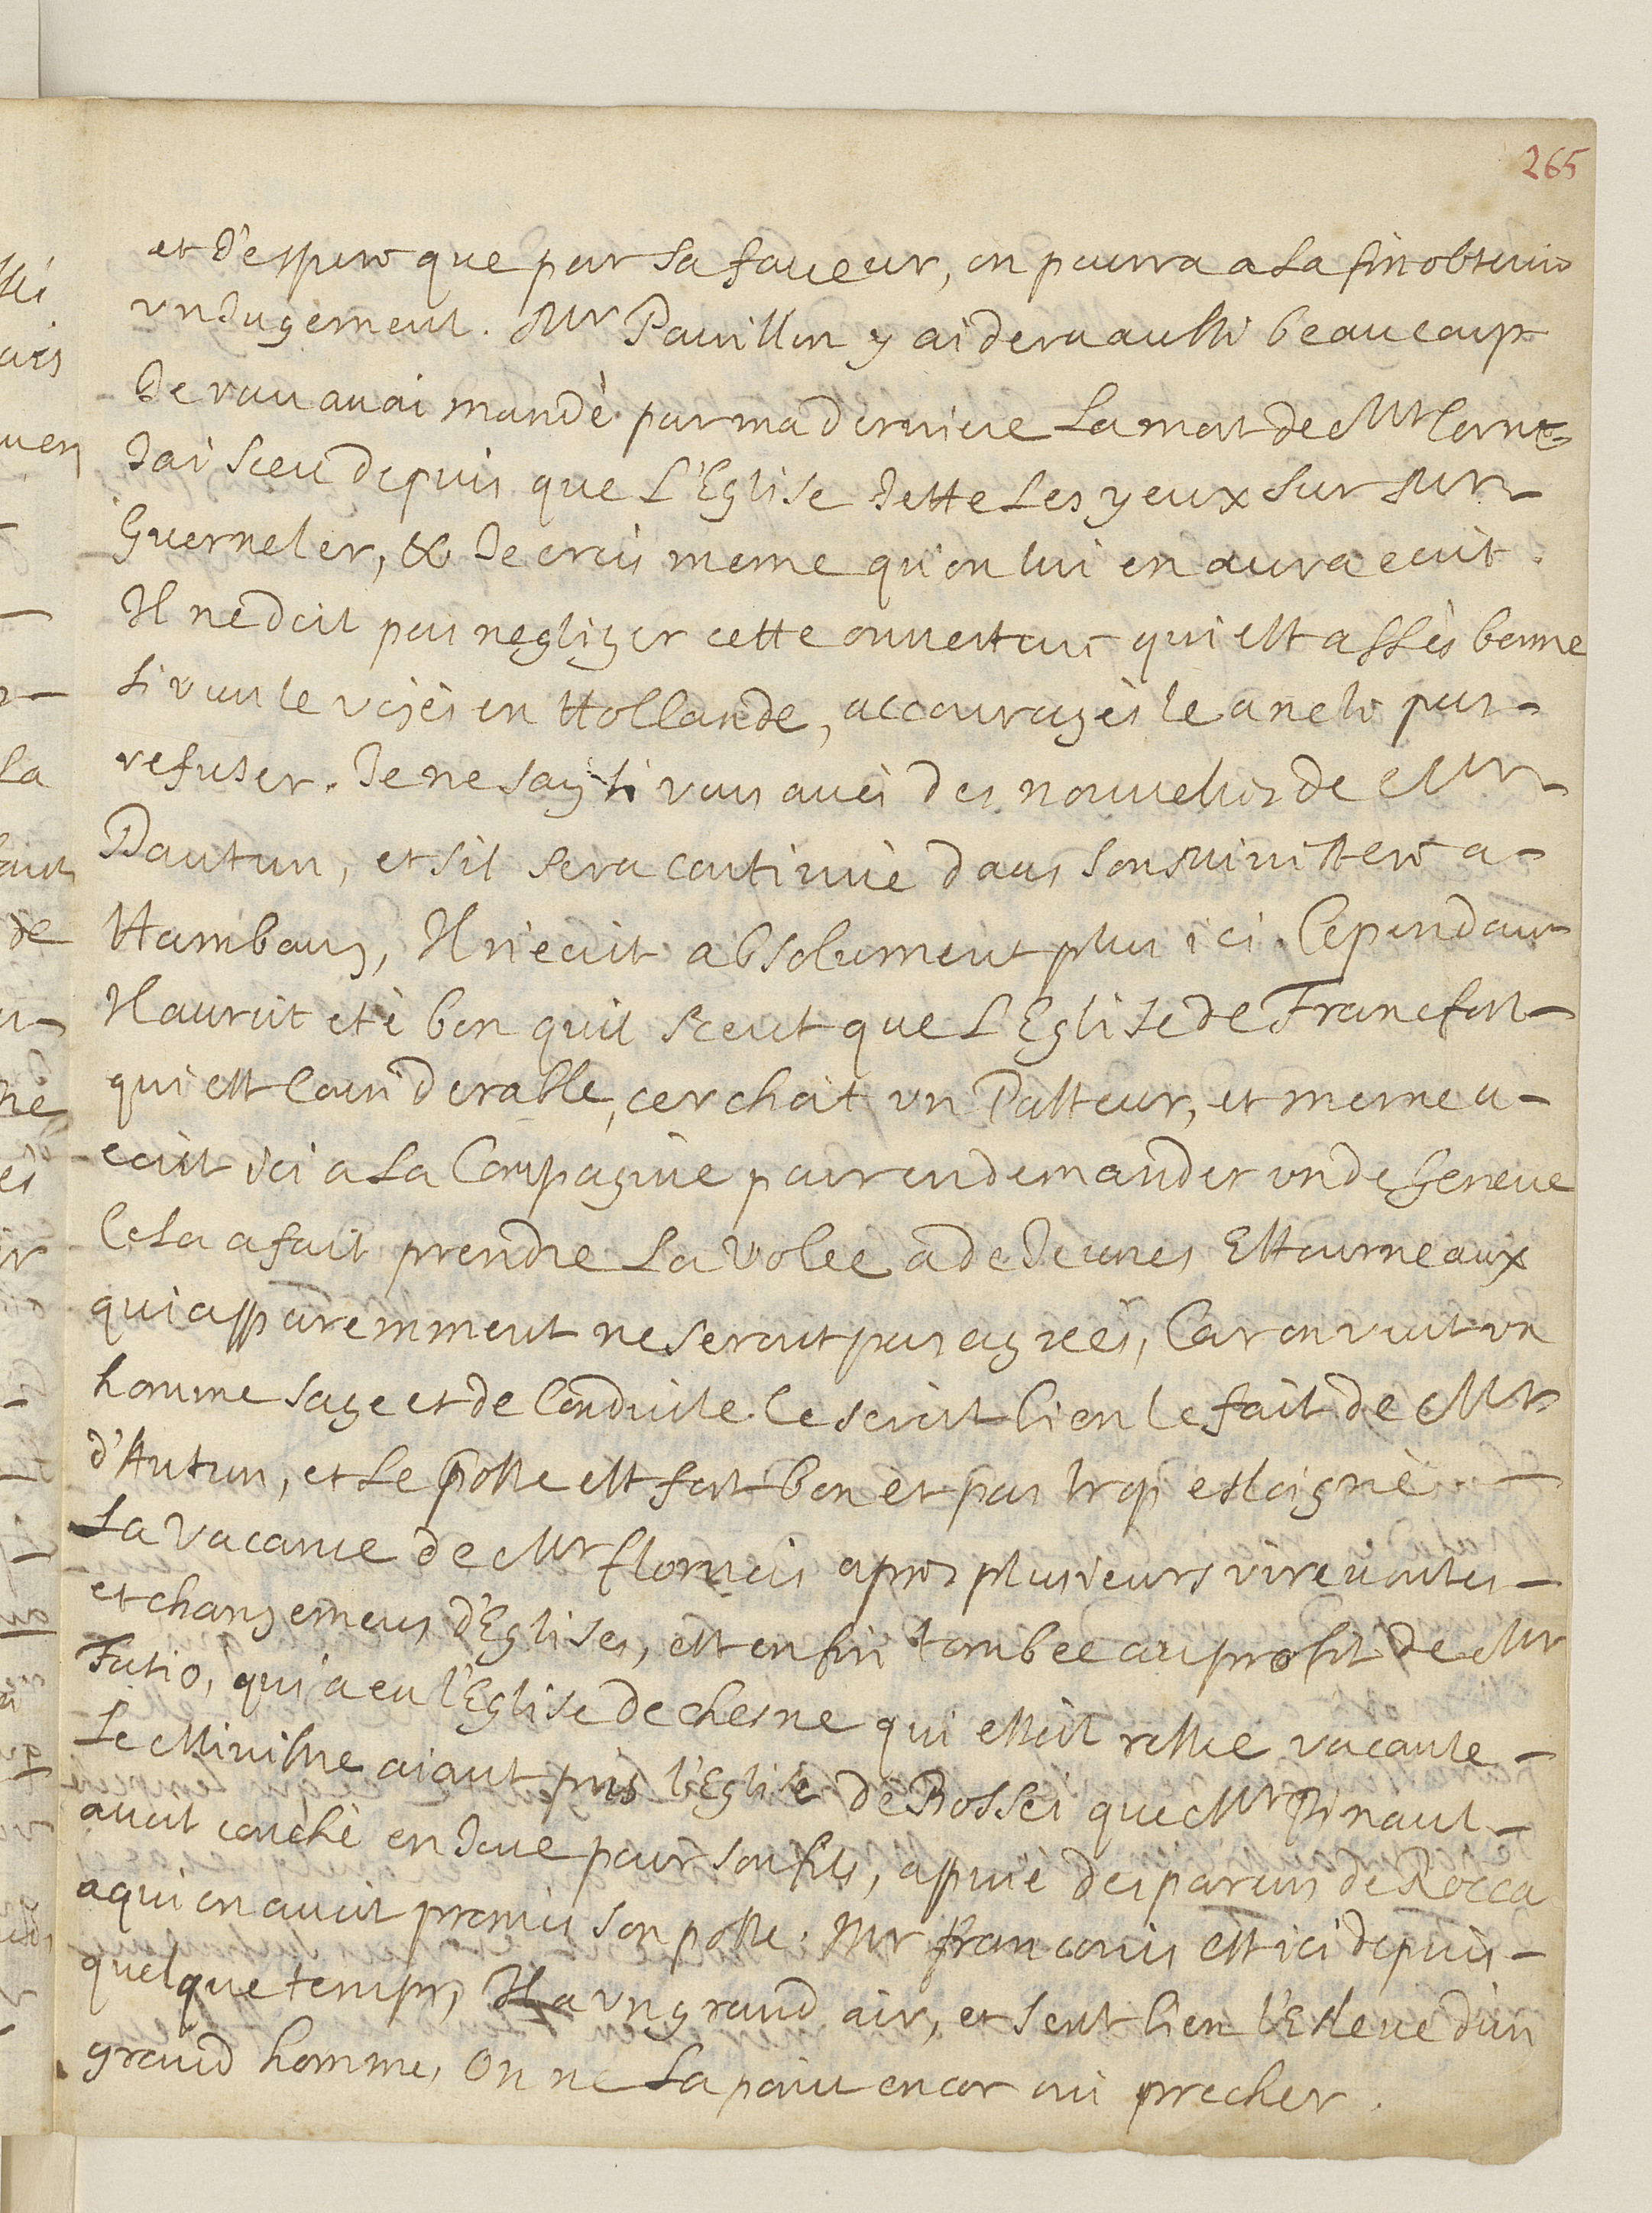 265
et J'espere que par sa faueur, on pourra a la fin obtenir
vn Jugement. Mr Pauillon y aidera aussi beaucoup
Je vous auoi mandè par ma derniere la mort de Mr
J'ai sceu depuis que L'Eglise Jette les yeux sur Mr
Guerneler, & Je crois meme qu'on lui en aura ecrit.
Il ne doit pas negliger cette ouuerture qui est assès bonne
si vous le voiès en Hollande, accouragès le a ne le pas
refuser. Je ne say si vous auès des nouuelles de Mr
Dautun, et sil sera continuè dans son ministere a
Hambourg, Il n'ecrit absolument plus ici. Cependant
Il auroit etè bon quil sceut que L'Eglise de Francfort
qui est Considerable, cerchoit vn Pasteur, et meme a
ecrit ici a la Compagnie pour en demander vn de Geneue
Cela a fait prendre la volee a de Jeunes Estourneaux
qui apparemment ne seront pas agreès, Car on veut vn
homme sage et de Conduite. Ce seroit bien le fait de Mr
d'Autun, et le poste est fort bon et pas trop esloignè
La vacance de Mr flornois apres plusieurs vireuoltes
et changemens d'Eglises, est enfin tombee au profit de Mr
Fatio, qui a eu l'Eglise de chesne qui estoit restee vacante
Le Ministre aiant pris l'Eglise de Bossei que Mr Pinault
auoit couchè en Joue pour son fils, appuiè des parens de Rocca
a qui on auoit promis son poste. Mr franconis est ici depuis
quelque temps, Il a vn grand air, et sent bien l'Esleue d'un
grand homme, On ne la point encor oui precher.